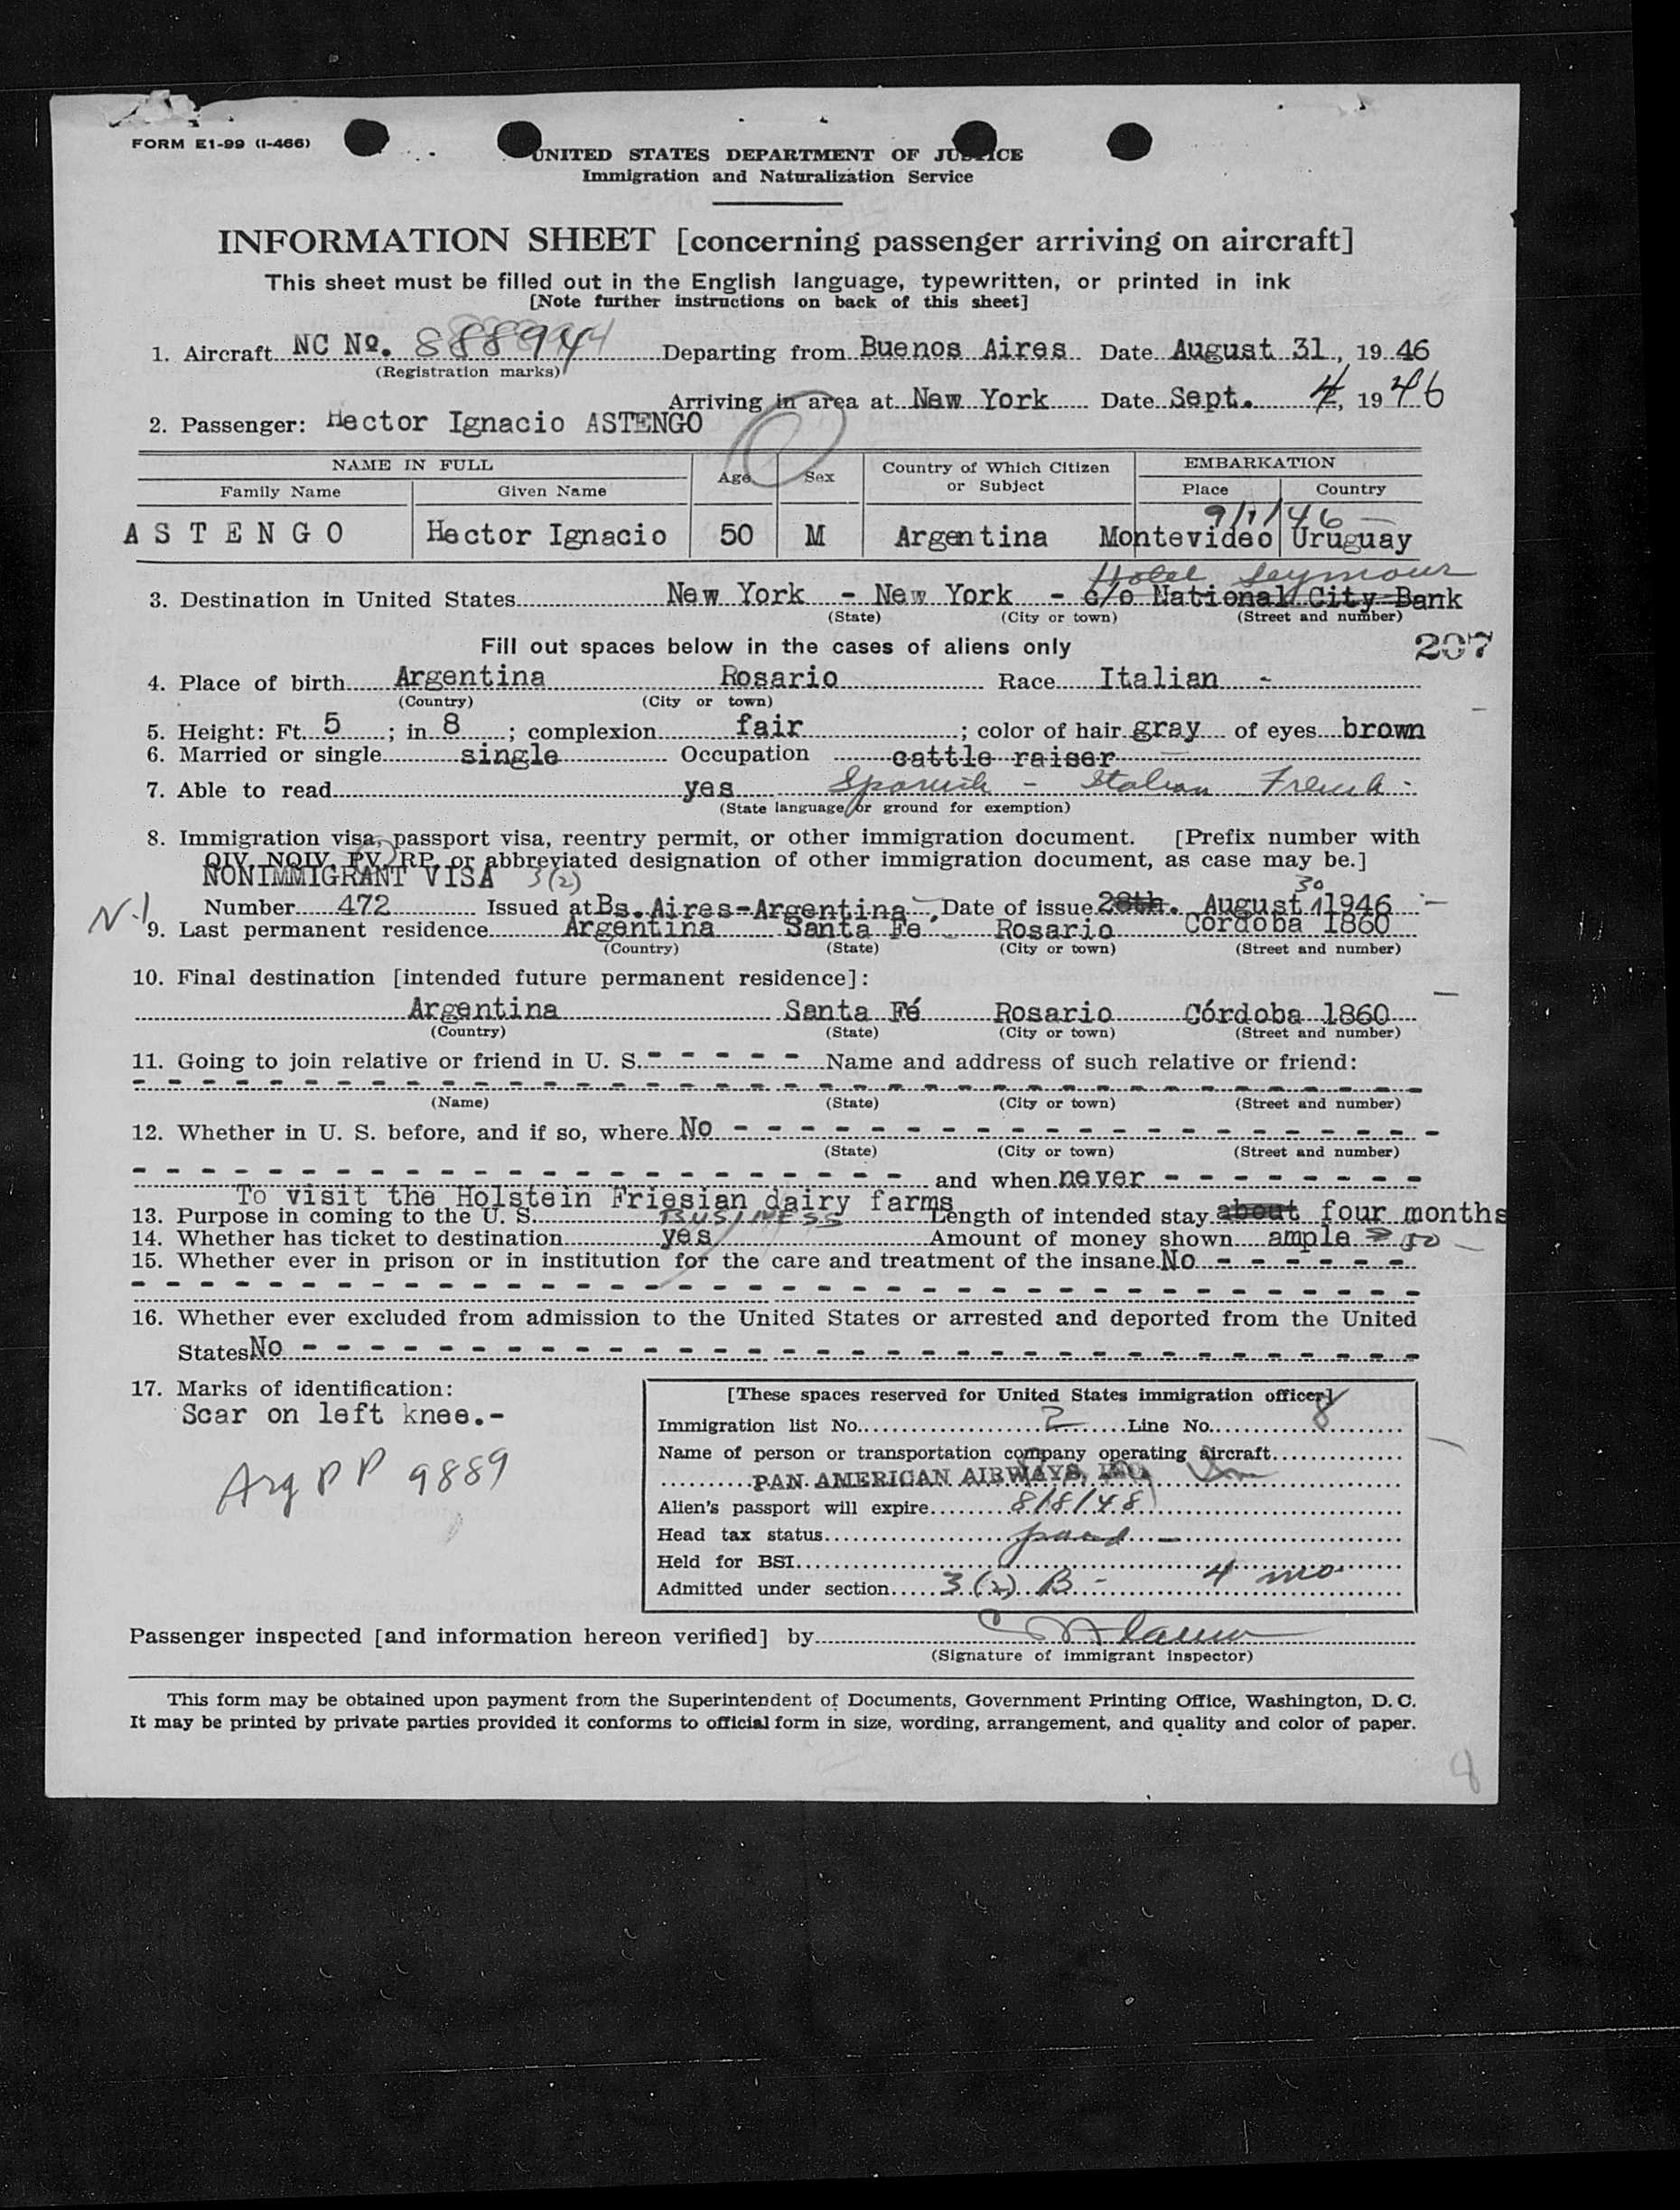 FORM E1-99 (I-466)
UNITED STATES DEPARTMENT OF JUSTICE
Immigration and Naturalization Service
INFORMATION SHEET [concerning passenger arriving on aircraft]
This sheet must be filled out in the English language, typewritten, or printed in ink
[Note further instructions on back of this sheet]
1. Aircraft NC Nº. 88894 Departing from Buenos Aires Date August 31, 1946
(Registration marks)
Arriving in area at New York Date Sept. 4, 1946
2. Passenger: Hector Ignacio ASTENGO
NAME IN FULL Age Sex Country of Which Citizen or Subject EMBARKATION
Family Name Given Name Place Country
9/1/46
ASTENGO Hector Ignacio 50 M Argentina Montevideo Uruguay
Hotel Seymour
3. Destination in United States New York - New York - c/o National City Bank
(State) (City or town) (Street and number)
Fill out spaces below in the cases of aliens only 207
4. Place of birth Argentina Rosario Race Italian -
(Country) (City or town)
5. Height: Ft. 5; in. 8; complexion fair; color of hair gray of eyes brown
6. Married or single single Occupation cattle raiser
7. Able to read yes Spanish - Italian French -
(State language or ground for exemption)
8. Immigration visa, passport visa, reentry permit, or other immigration document. [Prefix number with
QIV, NQIV, PV, RP, or abbreviated designation of other immigration document, as case may be.]
NONIMMIGRANT VISA 3(2)
30
Number 472 Issued at Bs. Aires-Argentina, Date of issue 28th. August 1946
9. Last permanent residence Argentina Santa Fe Rosario Cordoba 1860
(Country) (State) (City or town) (Street and number)
10. Final destination [intended future permanent residence]:
Argentina Santa Fé Rosario Córdoba 1860
(Country) (State) (City or town) (Street and number)
11. Going to join relative or friend in U. S. - - - - - Name and address of such relative or friend:
(Name) (State) (City or town) (Street and number)
12. Whether in U. S. before, and if so, where No
(State) (City or town) (Street and number)
and when never
To visit the Holstein Friesian dairy farms
13. Purpose in coming to the U. S. BUSINESS Length of intended stay about four months
14. Whether has ticket to destination yes Amount of money shown ample 50
15. Whether ever in prison or in institution for the care and treatment of the insane No
16. Whether ever excluded from admission to the United States or arrested and deported from the United
States No
17. Marks of identification:
Scar on left knee.-
Arg PP 9889
[These spaces reserved for United States immigration officer]
Immigration list No. 2 Line No. 8
Name of person or transportation company operating aircraft
PAN AMERICAN AIRWAYS, INC.
Alien's passport will expire 8/8/48
Head tax status paid -
Held for BSI
Admitted under section 3(2) B - 4 mo.
Passenger inspected [and information hereon verified] by
(Signature of immigrant inspector)
This form may be obtained upon payment from the Superintendent of Documents, Government Printing Office, Washington, D. C.
It may be printed by private parties provided it conforms to official form in size, wording, arrangement, and quality and color of paper.
8